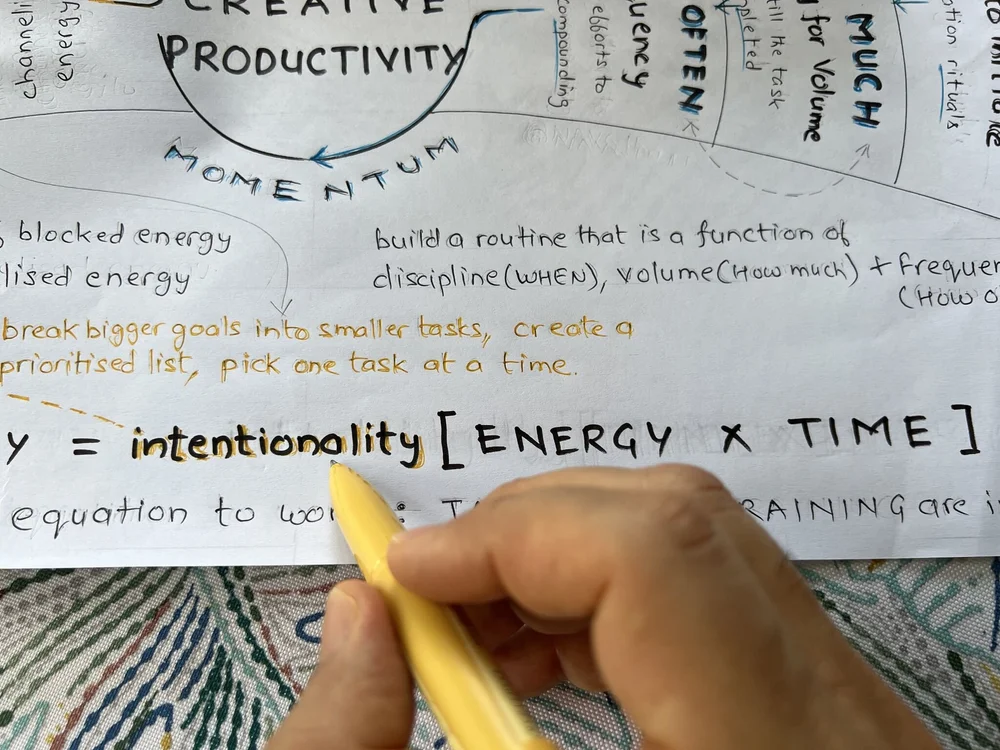 CREATIVE
PRODUCTIVITY
MOMENTUM
channeli
energy
compounding
efforts to
uency
OFTEN
pleted
till the task
for Volume
MUCH
rituals
blocked energy
lised energy
build a routine that is a function of
discipline (WHEN), volume (How much) + frequen
(HOW O
break bigger goals into smaller tasks, create a
prioritised list, pick one task at a time.
Y = intentionality [ENERGY X TIME]
equation to wor : T RAINING are i